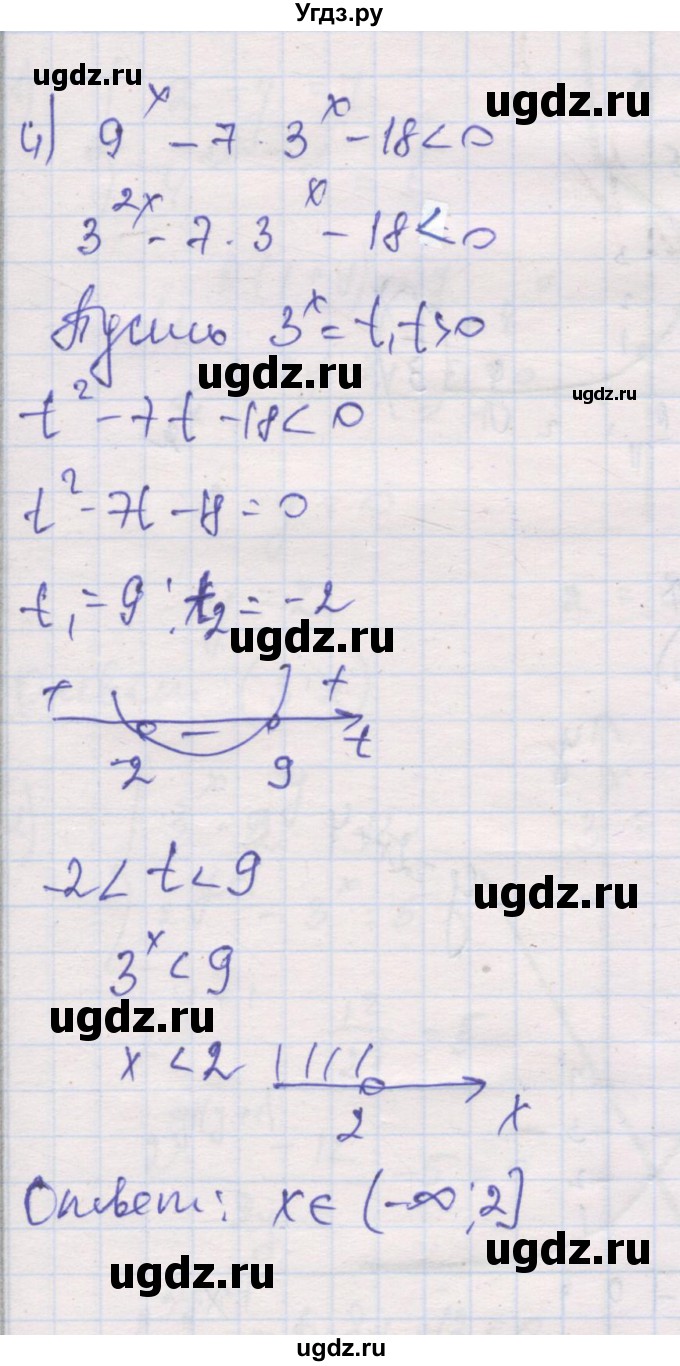 Угдз.ру
ugdz.ru
ugdz.ru
4) 9^x - 7 · 3^x - 18 < 0
3^2x - 7 · 3^x - 18 < 0
Пусть 3^x = t, t > 0
ugdz.ru
ugdz.ru
t^2 - 7t - 18 < 0
t^2 - 7t - 18 = 0
t1 = 9; t2 = -2
ugdz.ru
+ - +
-2 9 t
-2 < t < 9
ugdz.ru
3^x < 9
ugdz.ru
x < 2
2 x
Ответ: x ∈ (-∞; 2]
ugdz.ru
ugdz.ru
ugdz.ru